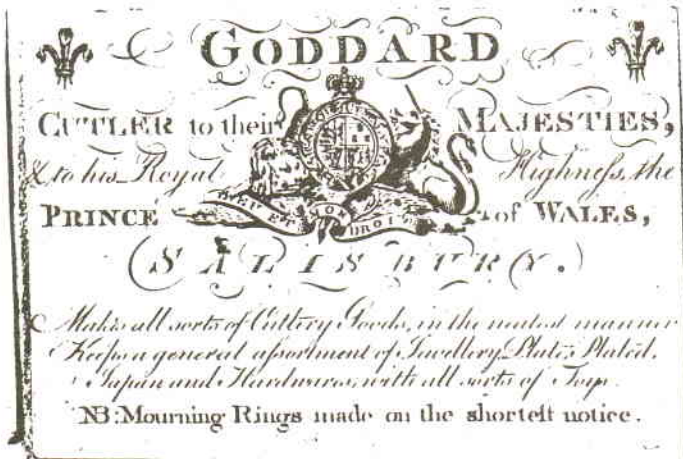 GODDARD
CUTLER to their MAJESTIES,
& to his Royal Highneſs, the
PRINCE of WALES,
DIEU ET MON DROIT
SALISBURY.
Makes all sorts of Cutlery Goods, in the neatest manner
Keeps a general aſsortment of Jewellery, Plate, Plated,
Japan and Hardwares, with all sorts of Toys.
NB: Mourning Rings made on the shorteſt notice.